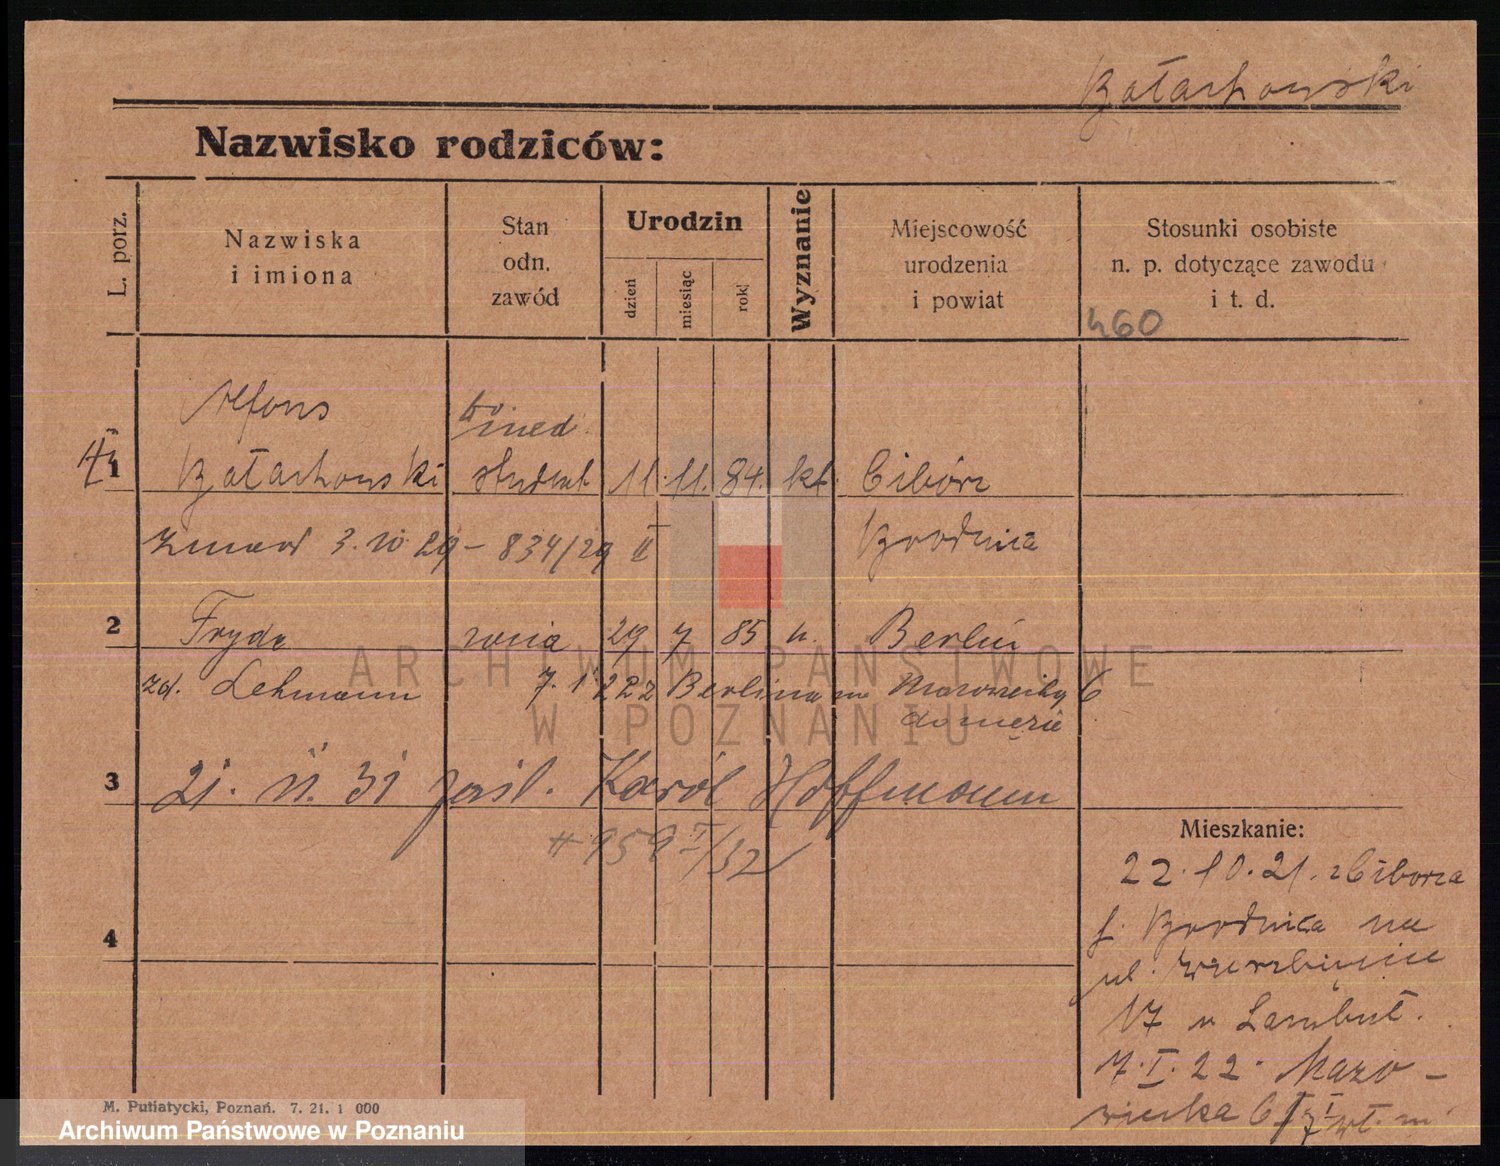 Bołachowski
Nazwisko rodziców:
L. porz.
Nazwiska
i imiona
Stan
odn.
zawód
Urodzin
dzień
miesiąc
rok
Wyznanie
Miejscowość
urodzenia
i powiat
Stosunki osobiste
n. p. dotyczące zawodu
i t. d.
460
Alfons
1 Bołachowski student 11. 11. 84. kt. Cibórz
3. 10 29 - 834/29 II Brodnica
2 Fryda 29 7 85 n. Berlin
zd. Lehmann 7. 1 22 z Berlina na Mazowiecką 6
do męża
3 21. 11. 31 Karol Hoffmann
959 I/32
4
Mieszkanie:
22. 10. 21. z Ciborza
p. Brodnica na
ul. Wierzbięcice
17 u Lambut.
7. I. 22. Mazo-
wiecka 6
M. Putiatycki, Poznań. 7. 21. 1 000
ARCHIWUM PAŃSTWOWE
W POZNANIU
Archiwum Państwowe w Poznaniu